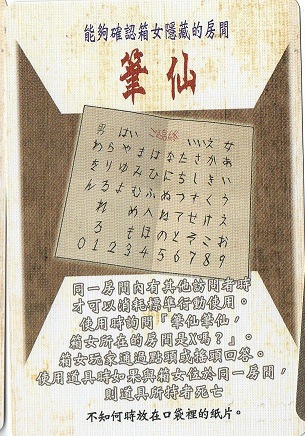 能夠確認箱女隱藏的房間
筆仙
男 はい いいえ 女
わ ら や ま は な た さ か あ
を り ゆ み ひ に ち し き い
ん る よ む ふ ぬ つ す く う
れ め へ ね て せ け え
ろ も ほ の と そ こ お
0 1 2 3 4 5 6 7 8 9
同一房間內有其他訪問者時
才可以消耗標準行動使用。
使用時詢問『筆仙筆仙，
箱女所在的房間是X嗎？』。
箱女玩家透過點頭或搖頭回答。
使用道具時如果與箱女位於同一房間，
則道具所持者死亡
不知何時放在口袋裡的紙片。